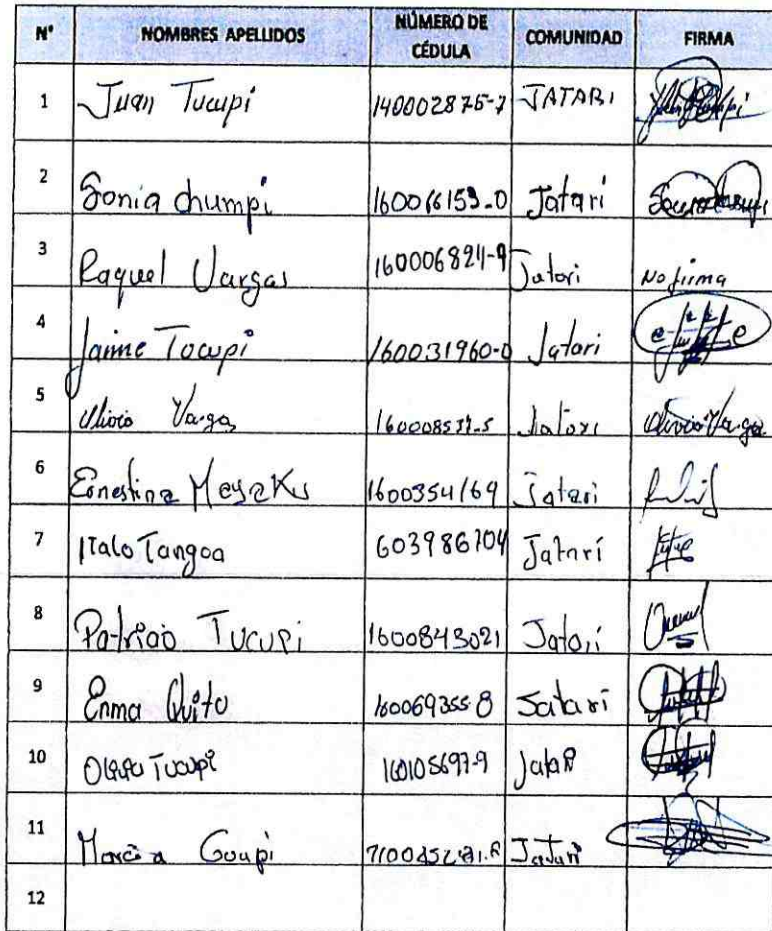 N° NOMBRES APELLIDOS NÚMERO DE CÉDULA COMUNIDAD FIRMA
1 Juan Tucupi 140002875-7 JATARI
2 Sonia chumpi 160066159-0 Jatari
3 Raquel Vargas 160006824-9 Jatari No firma
4 Jaime Tucupi 160031960-0 Jatari
5 Olivio Vargas Jatari Olivio Vargas
6 Ernestina Mayak 1600354169 Jatari
7 Italo Tangoa 603986704 Jatarí
8 Patricio Tucupi 1600843021 Jatari
9 Enma Quito 160069355-8 Jatari
10 Tucupi 160105697-9 Jatari
11 Jatari
12